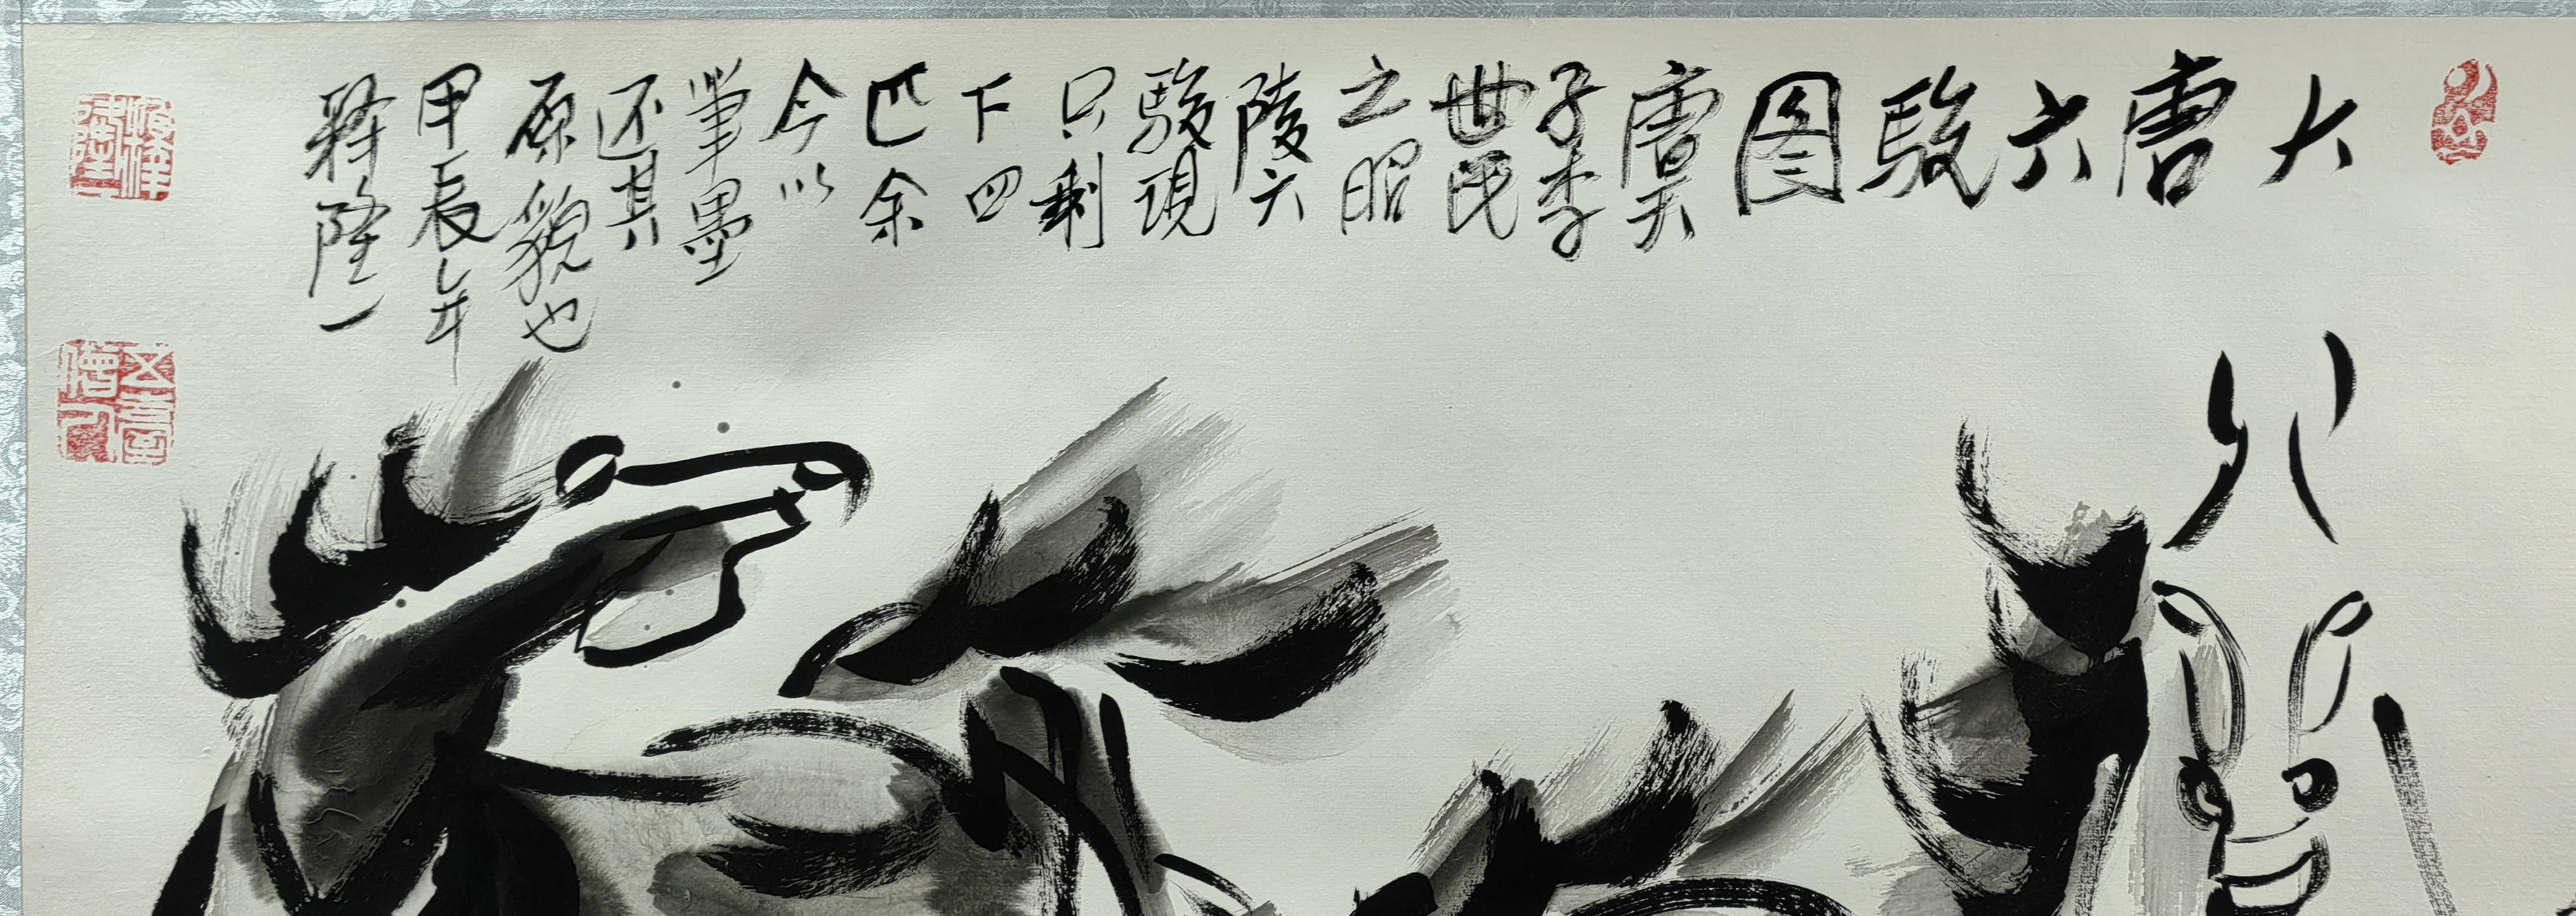 大唐六駿图
唐天
子李
世民
之昭
陵六
駿現
只剩
下四
匹余
今以
筆墨
还其
原貌也
甲辰年
释隆一